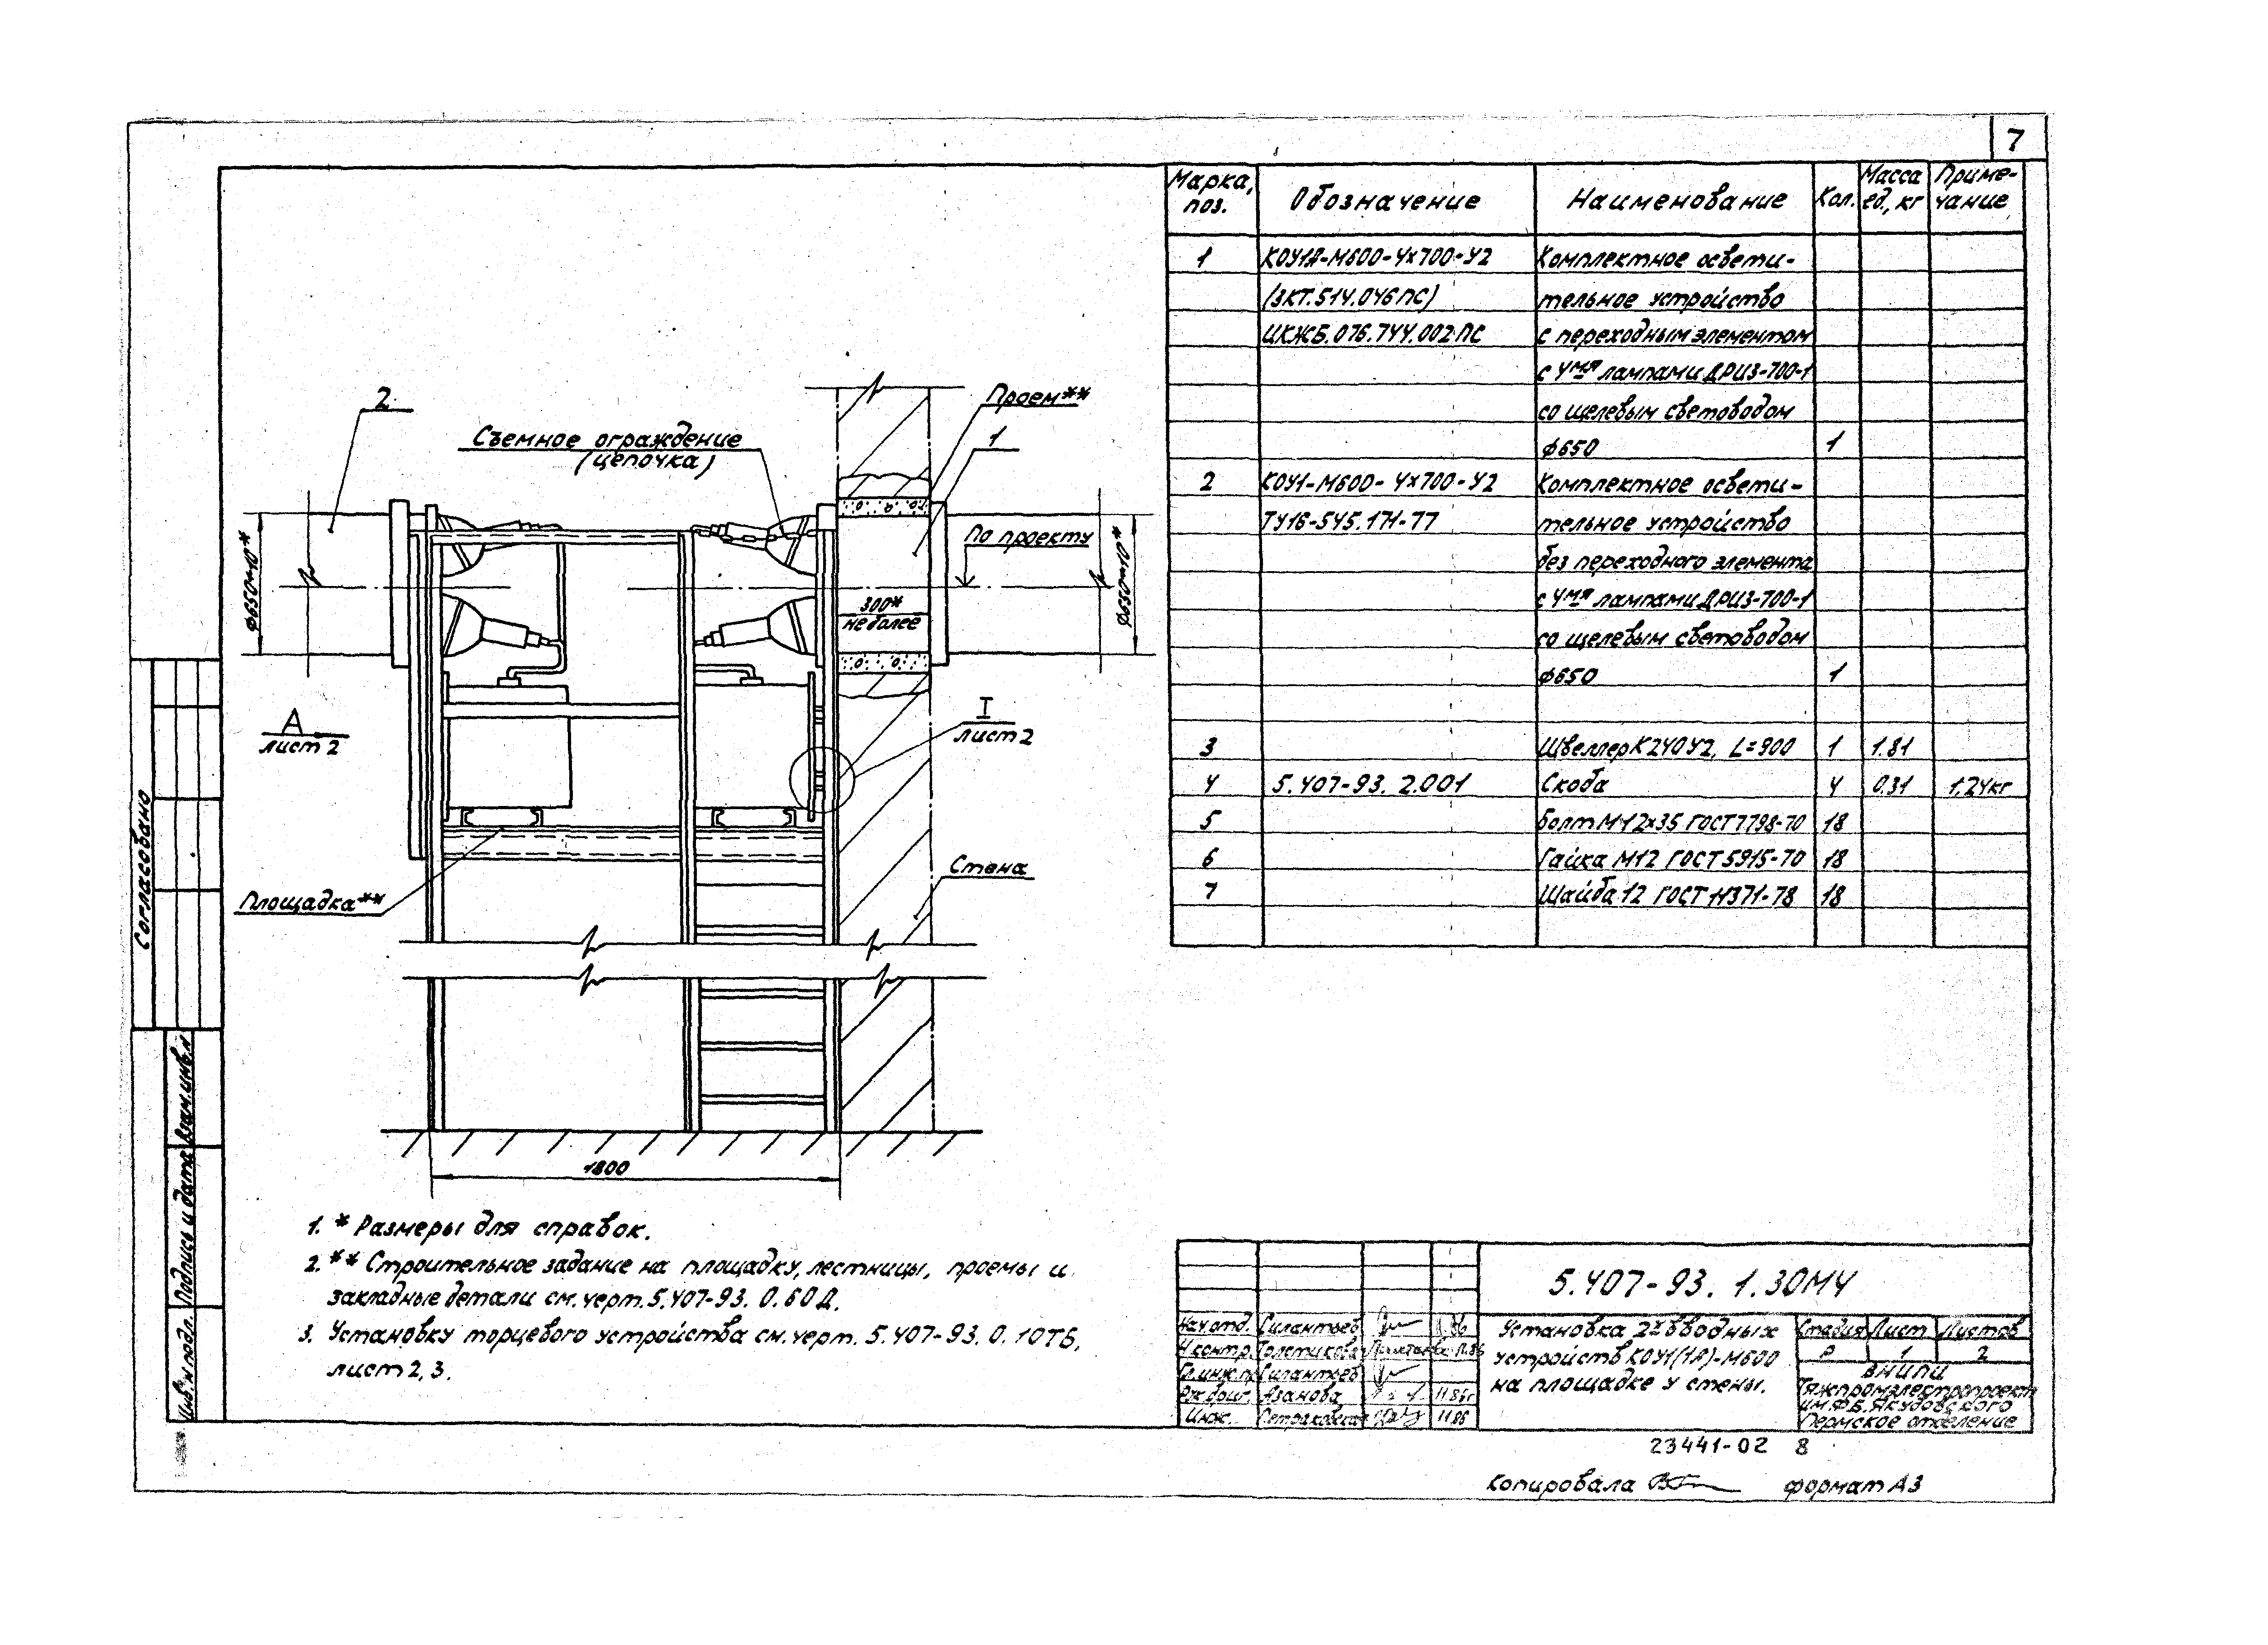 7
Марка, поз.
Обозначение
Наименование
Кол.
Масса ед., кг
Примечание
1 КОУ1А-М600-4х700-У2 Комплектное освети-
(ЗКТ.514.046ПС) тельное устройство
ИКЖБ.076.744.002ПС с переходным элементом
с 4мя лампами ДРИЗ-700-1
со щелевым световодом
ф650 1
2 КОУ1-М600-4х700-У2 Комплектное освети-
ТУ16-545.171-77 тельное устройство
без переходного элемента
с 4мя лампами ДРИЗ-700-1
со щелевым световодом
ф650 1
3 Швеллер К240У2, L=900 1 1.81
4 5.407-93. 2.001 Скоба 4 0.31 1.24кг
5 Болт М12х35 ГОСТ7798-70 18
6 Гайка М12 ГОСТ5915-70 18
7 Шайба 12 ГОСТ 11371-78 18
2
Съемное ограждение
(цепочка)
Проем**
1
По проекту
ф650-10*
300*
не более
ф650-10*
А
лист 2
I
лист 2
Стена
Площадка**
1800
1. * Размеры для справок.
2. ** Строительное задание на площадку, лестницы, проемы и
закладные детали см. черт. 5.407-93. 0.60Д.
3. Установку торцевого устройства см. черт. 5.407-93. 0.10ТБ,
лист 2, 3.
Согласовано
Взам.инв.н
Подпись и дата
Инв. н подл.
5.407-93. 1.30МЧ
Нач отд. Силантьев 11.86
Н контр. Толстикова 11.86
Гл.инж.пр Силантьев
Рук.бриг. Азанова 11.86г
Инж. 11.86
Установка 2х вводных
устройств КОУ1(1А)-М600
на площадке у стены.
Стадия Лист Листов
Р 1 2
ВНИПИ
Тяжпромэлектропроект
им.Ф.Б.Якубовского
Пермское отделение
23441-02 8
Копировала
формат А3